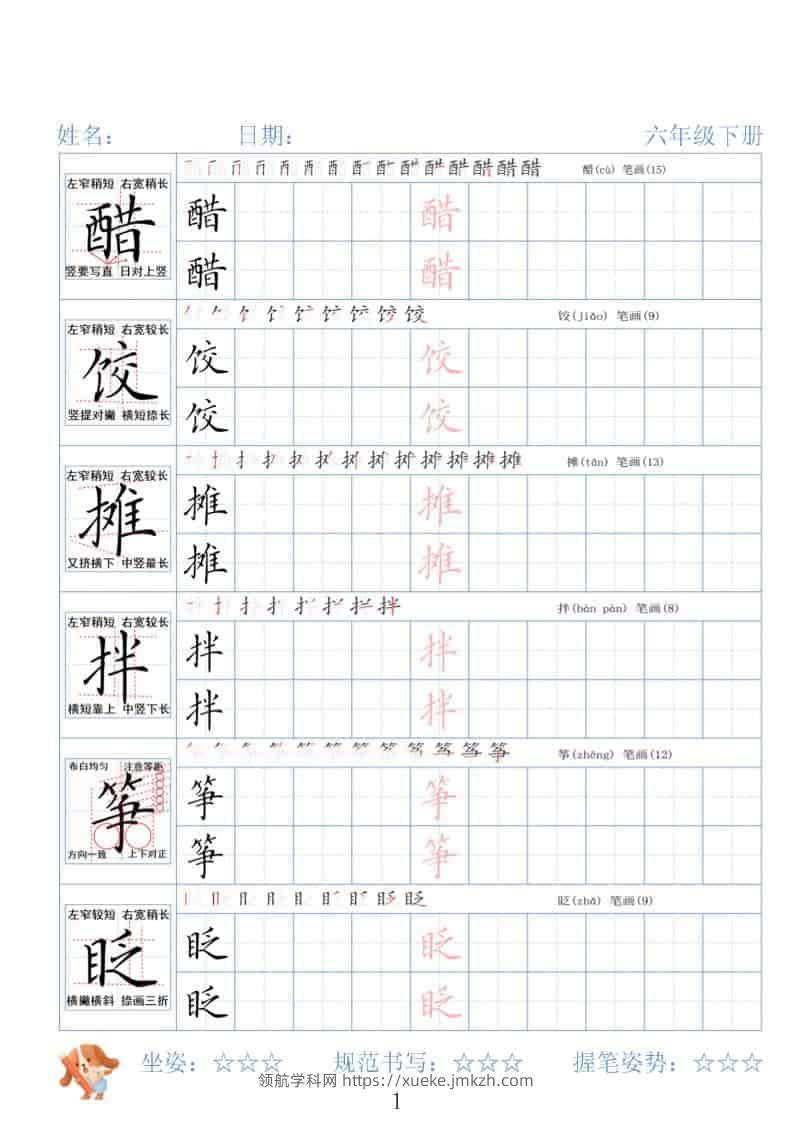 姓名： 日期： 六年级下册
醋(cù) 笔画(15)
左窄稍短 右宽稍长
醋
竖要写直 日对上竖
醋 醋
醋 醋
饺(jiǎo) 笔画(9)
左窄稍短 右宽较长
饺
竖提对撇 横短捺长
饺 饺
饺 饺
摊(tān) 笔画(13)
左窄稍短 右宽较长
摊
又挤横下 中竖最长
摊 摊
摊 摊
拌(bàn pàn) 笔画(8)
左窄稍短 右宽较长
拌
横短靠上 中竖下长
拌 拌
拌 拌
筝(zhēng) 笔画(12)
布白均匀 注意等距
筝
方向一致 上下对正
筝 筝
筝 筝
眨(zhǎ) 笔画(9)
左窄较短 右宽稍长
眨
横撇横斜 捺画三折
眨 眨
眨 眨
坐姿：☆☆☆ 规范书写：☆☆☆ 握笔姿势：☆☆☆
领航学科网 https://xueke.jmkzh.com
1